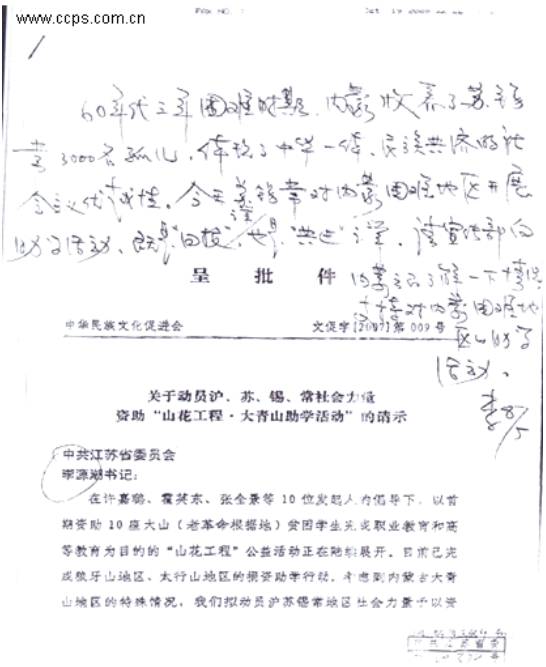 www.ccps.com.cn
FAX NO. :
60年代三年困难时期，内蒙收养了苏锡
常3000名孤儿，体现了中华一体、民族共济的社
会主义优越性。今天苏锡常对内蒙困难地区开展
助学活动，既是“回报”，也是“共进”。请宣传部向
内蒙了解一下情况
支持对内蒙困难地
区的助学
活动。
李 8/5
呈 批 件
中华民族文化促进会 文促字[2007]第 009 号
关于动员沪、苏、锡、常社会力量
资助“山花工程·大青山助学活动”的请示
中共江苏省委员会
李源潮书记：
在许嘉璐、霍英东、张全景等 10 位发起人的倡导下，以首
期资助 10 座大山（老革命根据地）贫困学生完成职业教育和高
等教育为目的的“山花工程”公益活动正在陆续展开。目前已完
成狼牙山地区、太行山地区的捐资助学行动，考虑到内蒙古大青
山地区的特殊情况，我们拟动员沪苏锡常地区社会力量予以资